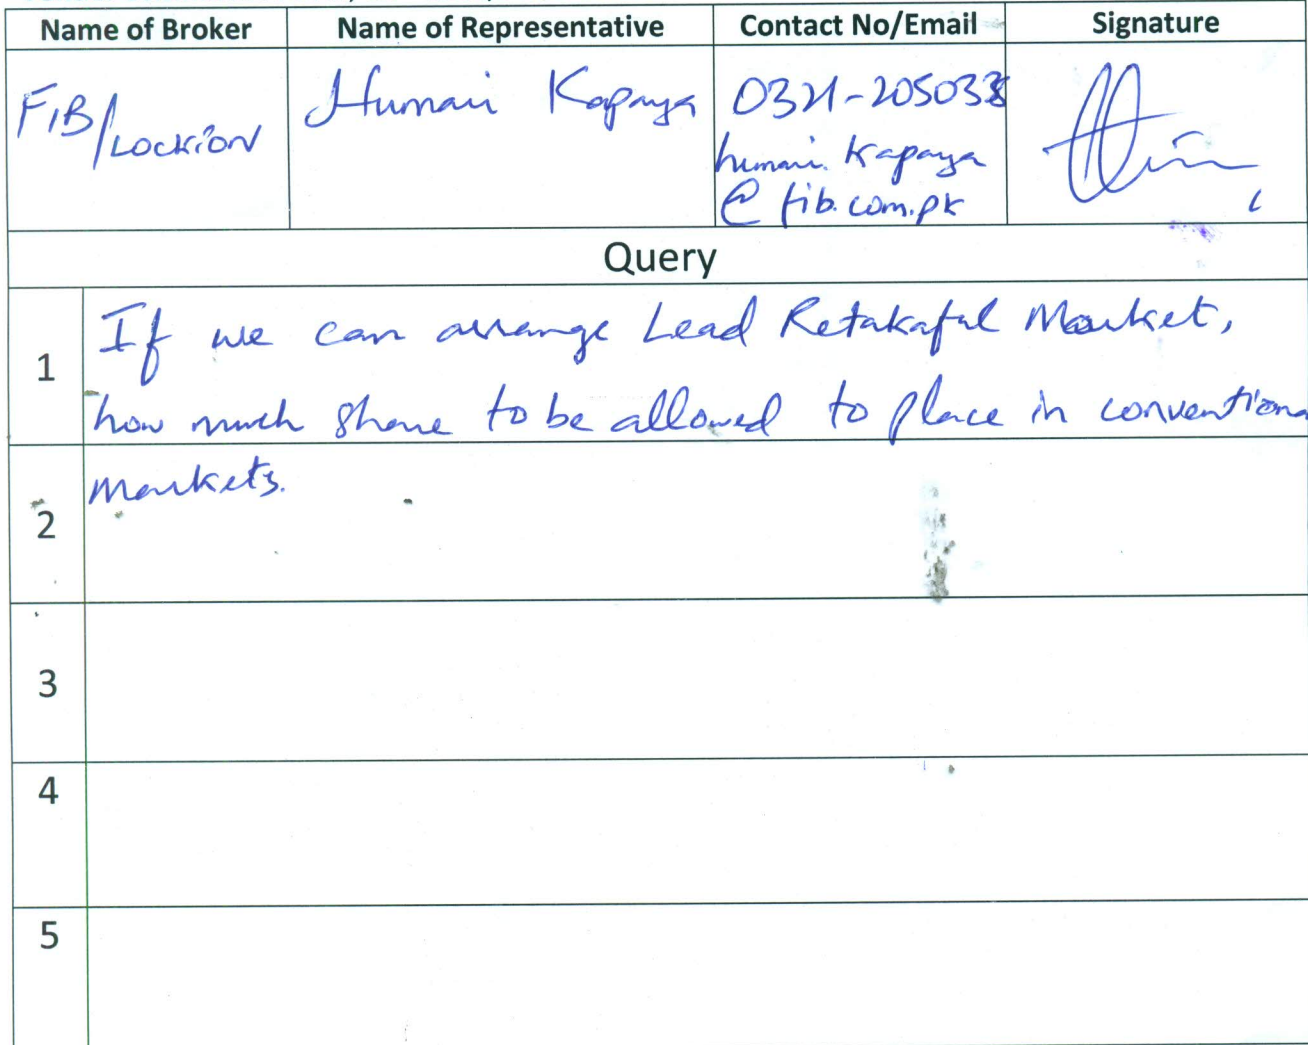 Name of Broker Name of Representative Contact No/Email Signature
FIB/LOCKTON Kapaya 0321-205033
kapaya
@fib.com.pk
Query
1 If we can arrange Lead Retakaful Market,
how much share to be allowed to place in convention
2 Markets.
3
4
5